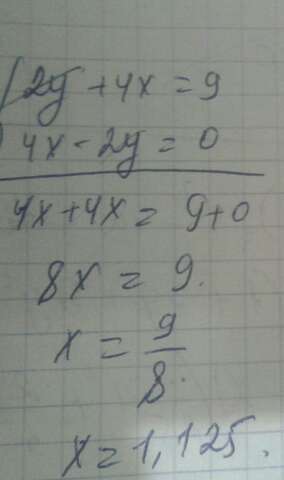 2y + 4x = 9
4x - 2y = 0
4x + 4x = 9 + 0
8x = 9.
x = 9/8.
x = 1,125.